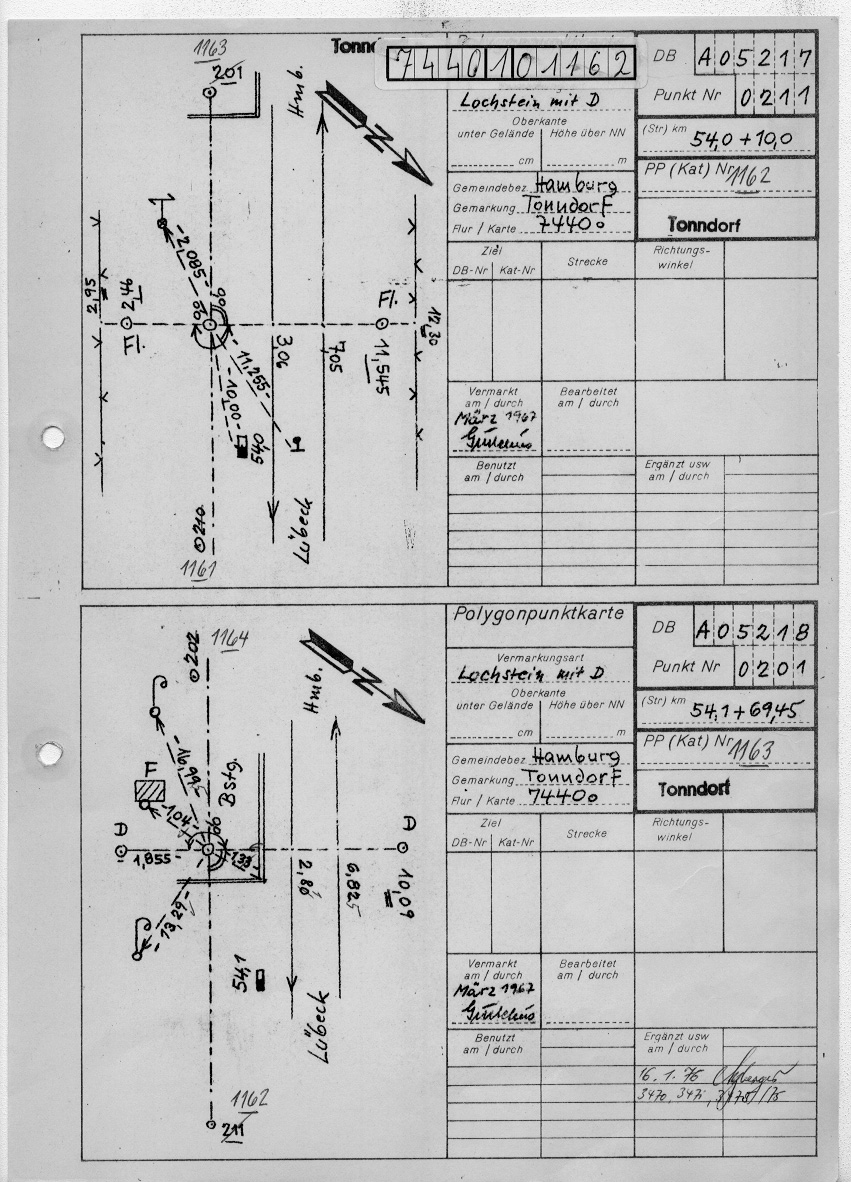 7440101162
Lochstein mit D
Oberkante
unter Gelände Höhe über NN
cm m
Gemeindebez Hamburg
Gemarkung Tonndorf
Flur / Karte 74400
DB A05217
Punkt Nr 0211
(Str) km 54,0 + 10,0
PP (Kat) Nr 1162
Tonndorf
Ziel
DB-Nr Kat-Nr
Strecke
Richtungs-
winkel
Vermarkt
am / durch
März 1967
Bearbeitet
am / durch
Benutzt
am / durch
Ergänzt usw
am / durch
1163
201
Hmb.
N
2,580
2,95
2,46
Fl.
Fl.
11,545
12,30
3,06
7,05
11,255
10,00
54,0
H
Lübeck
210
1161
Polygonpunktkarte
Vermarkungsart
Lochstein mit D
Oberkante
unter Gelände Höhe über NN
cm m
Gemeindebez Hamburg
Gemarkung Tonndorf
Flur / Karte 74400
DB A05218
Punkt Nr 0201
(Str) km 54,1 + 69,45
PP (Kat) Nr 1163
Tonndorf
Ziel
DB-Nr Kat-Nr
Strecke
Richtungs-
winkel
Vermarkt
am / durch
März 1967
Bearbeitet
am / durch
Benutzt
am / durch
Ergänzt usw
am / durch
16. 1. 76
1164
202
Hmb.
N
F
Bstg.
D
1,855
D
10,09
2,80
6,825
13,29
54,1
Lübeck
1162
211